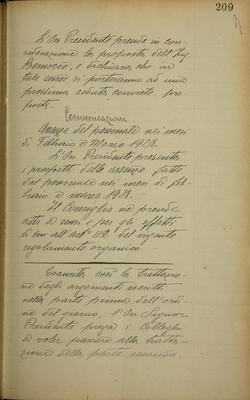 209
L'On. Presidente prende in con-
siderazione la proposta dell'Ing.
e dichiara che in
tale senso si porteranno ad una
prossima seduta concrete pro-
poste.
Comunicazioni
Assenze del personale nei mesi
di Febbraio e Marzo 1928.
L'On. Presidente presenta
i prospetti delle assenze fatte
dal personale nei mesi di feb-
braio e marzo 1928.
Il Consiglio ne prende
atto ai sensi e per gli effetti
di cui all'art. 112 del vigente
regolamento organico.
Esaurita così la trattazio-
ne degli argomenti iscritti
nella parte prima dell'ordi-
ne del giorno, l'On. Signor
Presidente prega i Colleghi
a voler passare alla tratta-
zione della parte seconda,